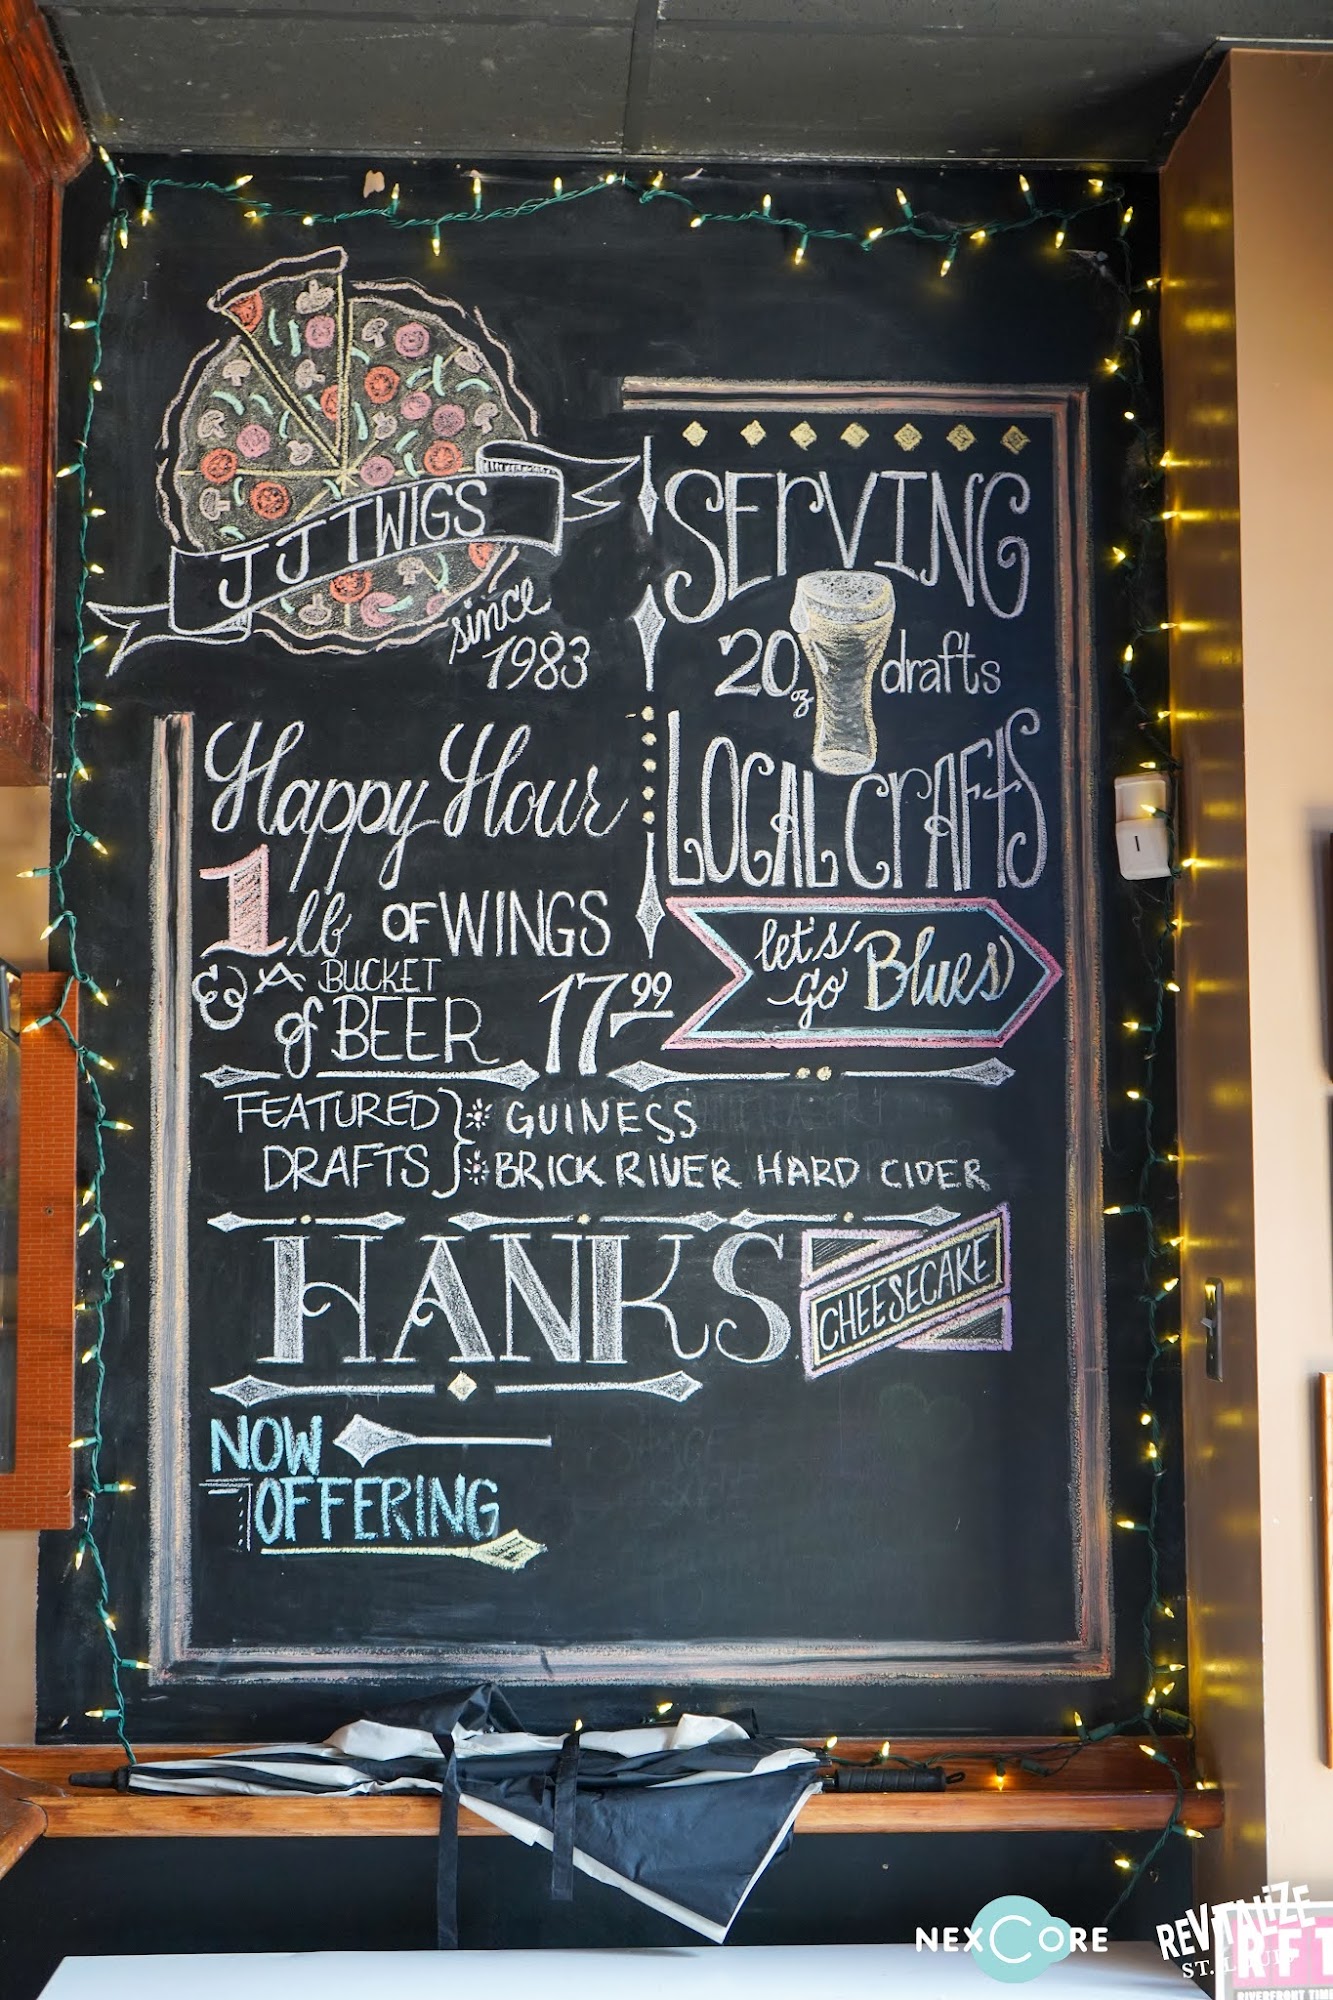 JJ TWIGS
since
1983
SERVING
20 oz drafts
LOCAL CRAFTS
let's go Blues
Happy Hour
1 lb OF WINGS
& A BUCKET
of BEER 17.99
FEATURED DRAFTS
GUINESS
BRICK RIVER HARD CIDER
HANKS CHEESECAKE
NOW
OFFERING
NEXCORE
REVITALIZE
ST. LOUIS
RFT
RIVERFRONT TIM